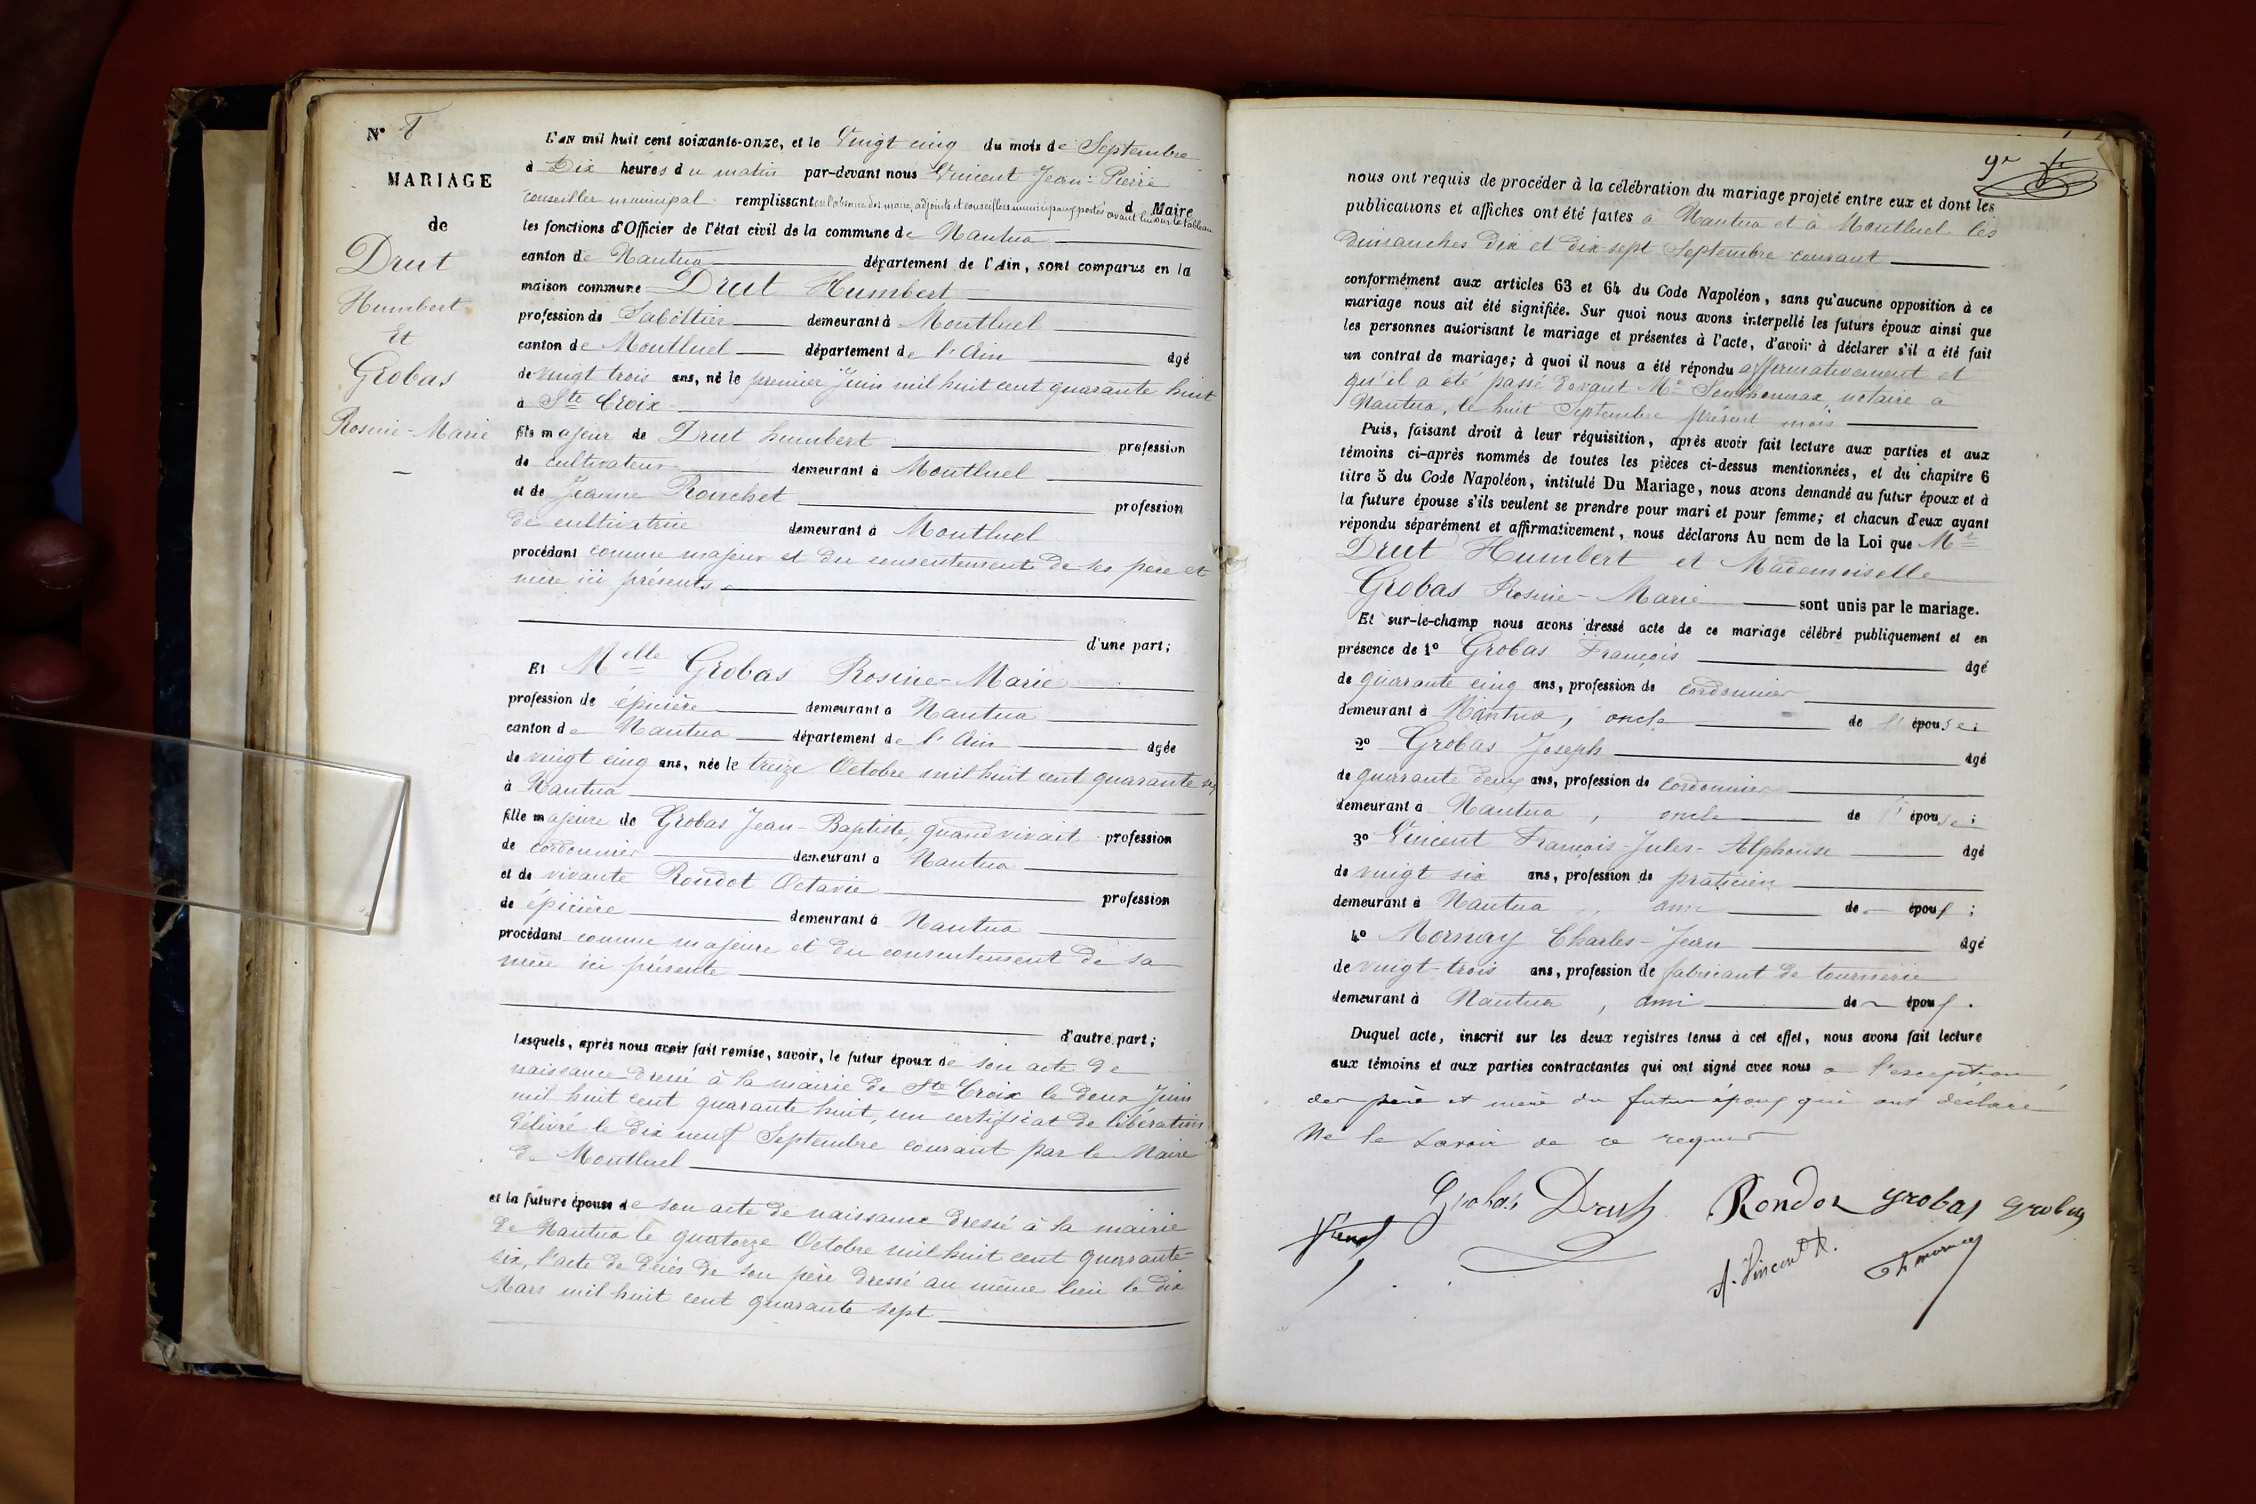 N° 8
MARIAGE
de
Drut
Humbert
et
Grobas
Rosine-Marie
L'an mil huit cent soixante-onze, et le Vingt cinq du mois de Septembre
à Dix heures du matin par-devant nous Vincent Jean-Pierre
conseiller municipal remplissant en l'absence des maire, adjoints et conseillers municipaux portés avant lui sur le tableau d Maire
les fonctions d'Officier de l'état civil de la commune de Nantua
canton de Nantua département de l'Ain, sont comparus en la
maison commune Drut Humbert
profession de Sabottier demeurant à Montluel
canton de Montluel département de l'Ain âgé
de vingt trois ans, né le premier Juin mil huit cent quarante huit
à Ste Croix
fils majeur de Drut humbert profession
de cultivateur demeurant à Montluel
et de Jeanne Ronchet profession
de cultivatrice demeurant à Montluel
procédant comme majeur et du consentement de ses père et
mère ici présents
d'une part;
Et Melle Grobas Rosine-Marie
profession de épicière demeurant à Nantua
canton de Nantua département de l'Ain âgée
de vingt cinq ans, née le treize Octobre mil huit cent quarante six
à Nantua
fille majeure de Grobas Jean-Baptiste, quand vivait profession
de cordonnier demeurant à Nantua
et de vivante Rondot Octavie profession
de épicière demeurant à Nantua
procédant comme majeure et du consentement de sa
mère ici présente
d'autre part;
Lesquels, après nous avoir fait remise, savoir, le futur époux de son acte de
naissance dressé à la mairie de Ste Croix le deux Juin
mil huit cent quarante huit, un certificat de libération
délivré le dix neuf Septembre courant par le Maire
de Montluel
et la future épouse de son acte de naissance dressé à la mairie
de Nantua le quatorze Octobre mil huit cent quarante-
six, l'acte de décès de son père dressé au même lieu le dix
Mars mil huit cent quarante sept
nous ont requis de procéder à la célébration du mariage projeté entre eux et dont les
publications et affiches ont été faites à Nantua et à Montluel les
Dimanches dix et dix-sept Septembre courant
conformément aux articles 63 et 64 du Code Napoléon, sans qu'aucune opposition à ce
mariage nous ait été signifiée. Sur quoi nous avons interpellé les futurs époux ainsi que
les personnes autorisant le mariage et présentes à l'acte, d'avoir à déclarer s'il a été fait
un contrat de mariage; à quoi il nous a été répondu affirmativement et
qu'il a été passé devant Me notaire à
Nantua, le huit Septembre présent mois
Puis, faisant droit à leur réquisition, après avoir fait lecture aux parties et aux
témoins ci-après nommés de toutes les pièces ci-dessus mentionnées, et du chapitre 6
titre 5 du Code Napoléon, intitulé Du Mariage, nous avons demandé au futur époux et à
la future épouse s'ils veulent se prendre pour mari et pour femme; et chacun d'eux ayant
répondu séparément et affirmativement, nous déclarons Au nom de la Loi que Mr
Drut Humbert et Mademoiselle
Grobas Rosine-Marie sont unis par le mariage.
Et sur-le-champ nous avons dressé acte de ce mariage célébré publiquement et en
présence de 1° Grobas François âgé
de quarante cinq ans, profession de cordonnier
demeurant à Nantua, oncle de l'épouse;
2° Grobas Joseph âgé
de quarante deux ans, profession de cordonnier
demeurant à Nantua, oncle de l'épouse;
3° Vincent François-Jules-Alphonse âgé
de vingt six ans, profession de praticien
demeurant à Nantua, ami de époux;
4° Mornay Charles-Jean âgé
de vingt-trois ans, profession de fabricant de tournerie
demeurant à Nantua, ami de époux.
Duquel acte, inscrit sur les deux registres tenus à cet effet, nous avons fait lecture
aux témoins et aux parties contractantes qui ont signé avec nous à l'exception
des père et mère du futur époux qui ont déclaré
ne le savoir de ce requis
Grobas Drut Rondot grobas grobas
Vincent A. Vincent Ch mornay